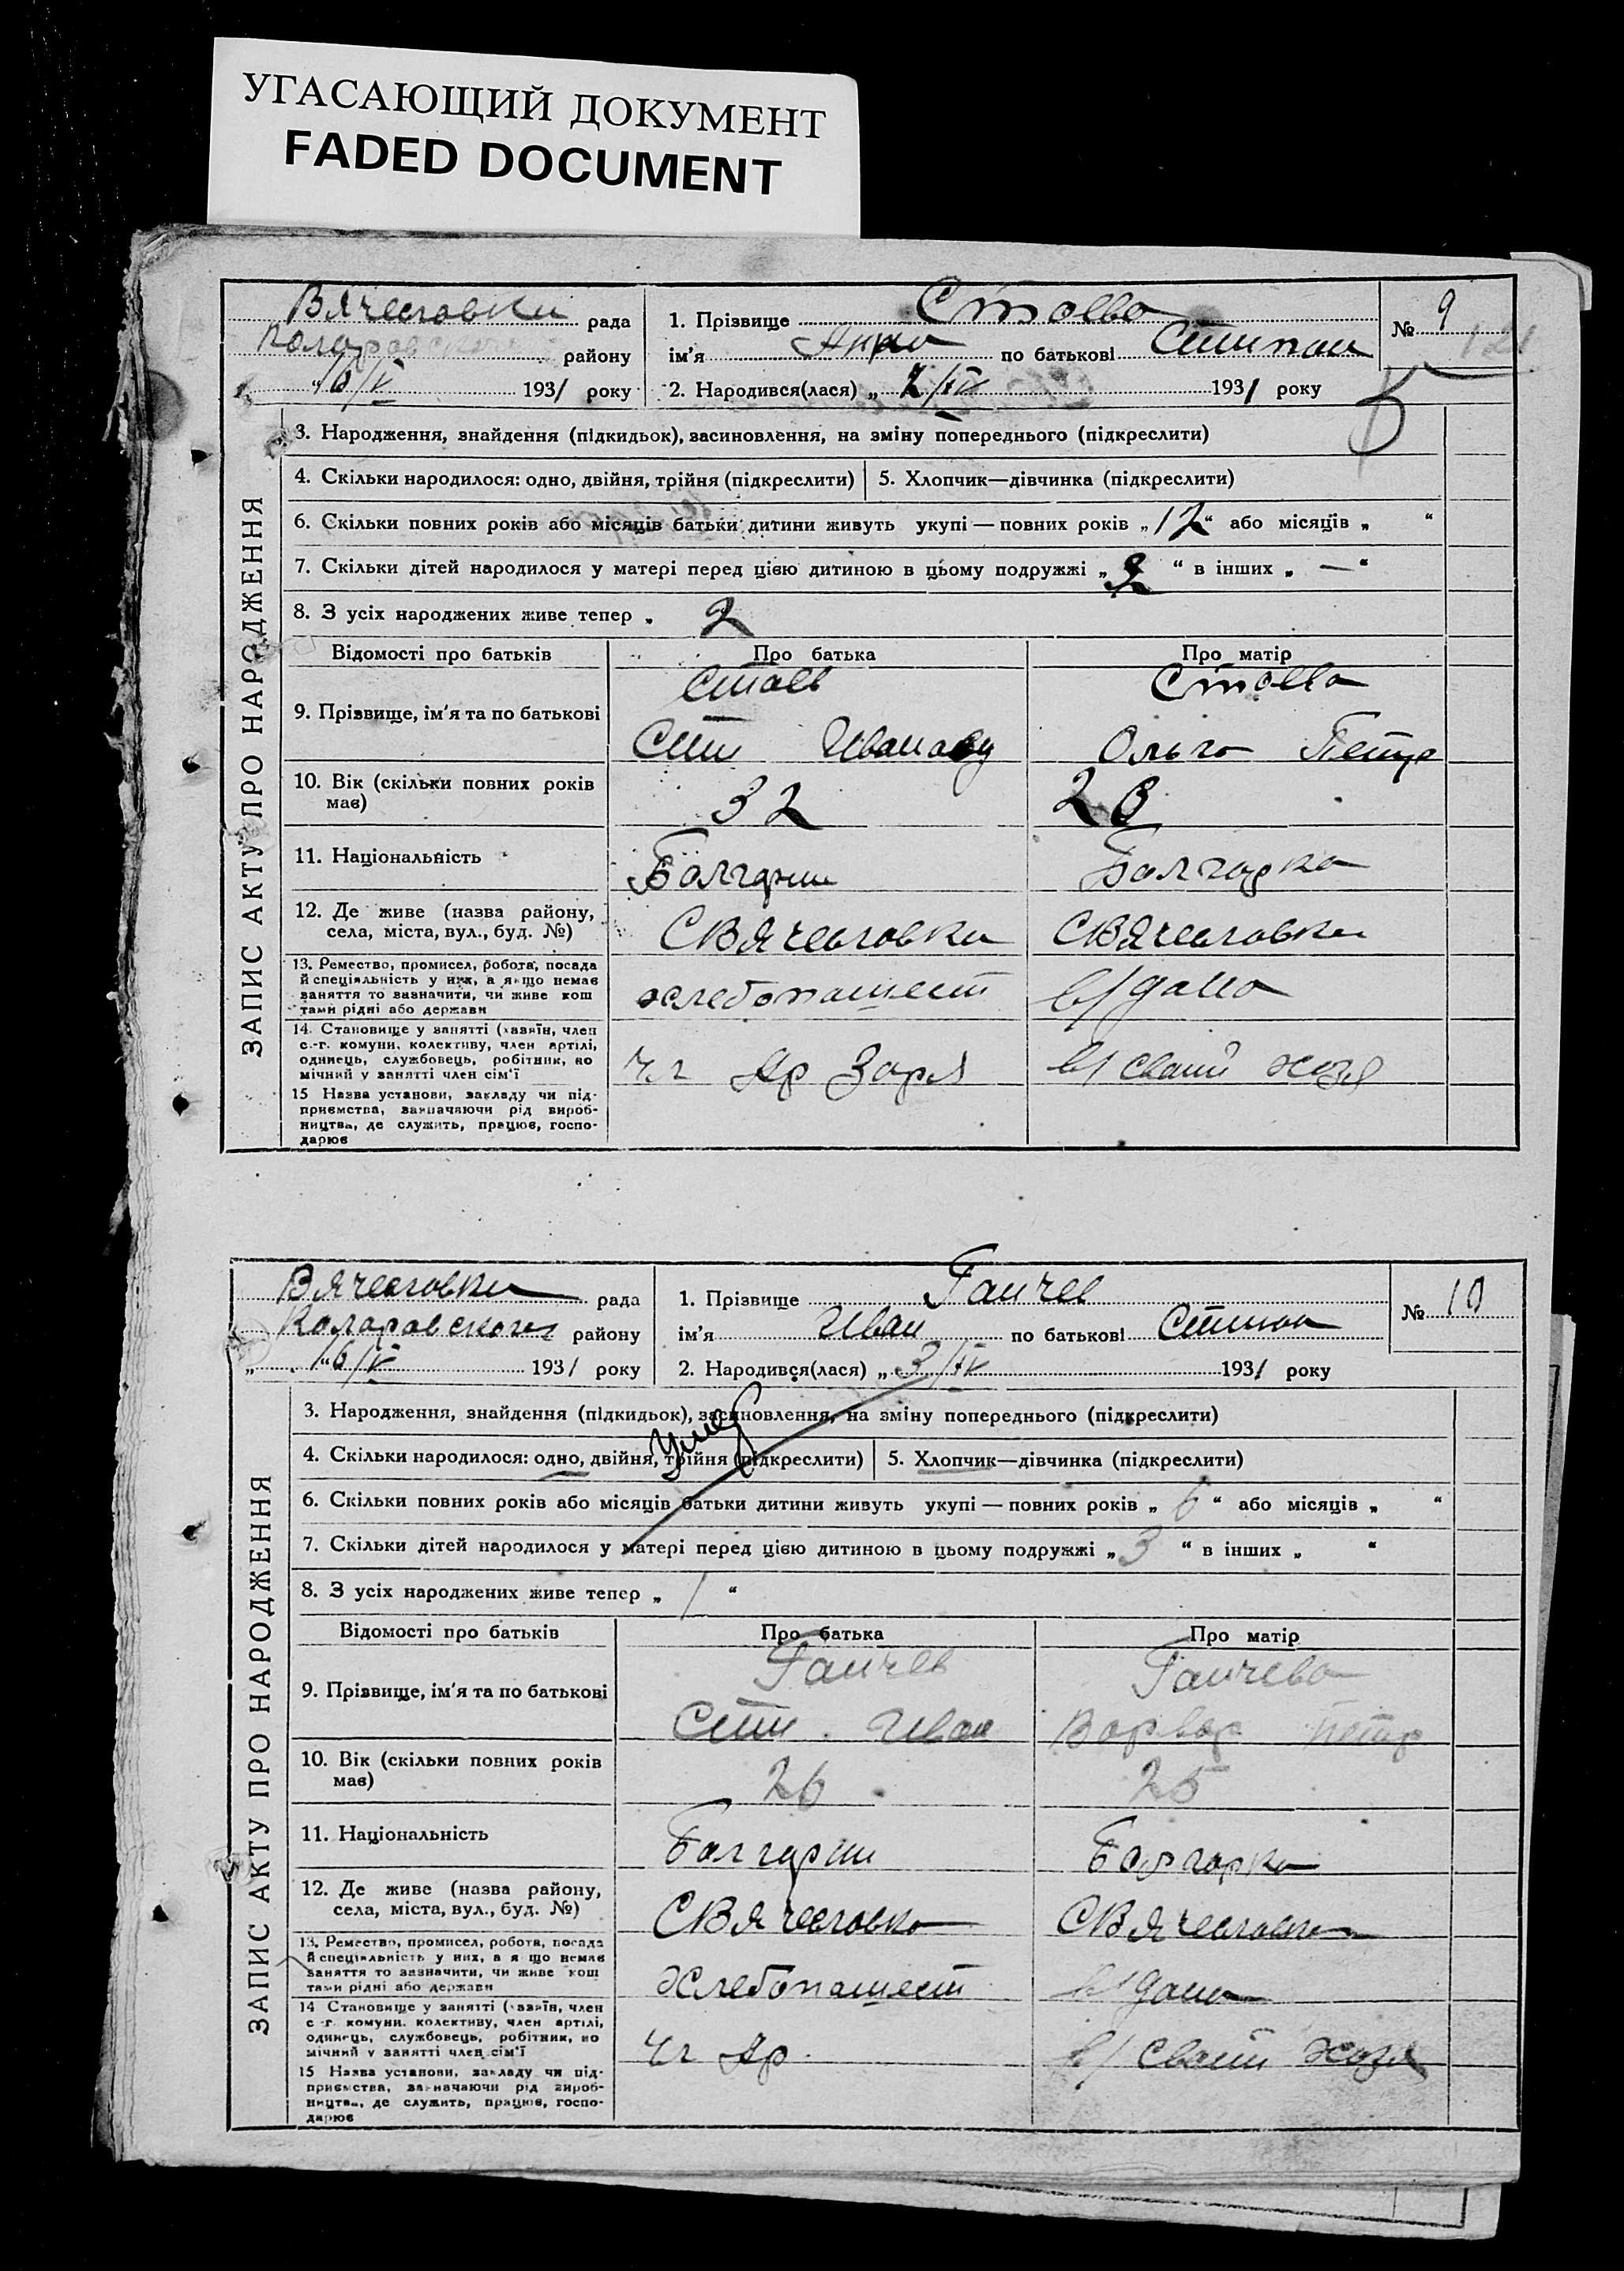 УГАСАЮЩИЙ ДОКУМЕНТ
FADED DOCUMENT
Вячеславки рада
Коларовского району
"16/IV 1931 року
1. Прізвище Стоева
ім'я Анна по батькові Степан
2. Народився(лася) „ 2/IV 1931 року
№ 9
ЗАПИС АКТУ ПРО НАРОДЖЕННЯ
3. Народження, знайдення (підкидьок), засиновлення, на зміну попереднього (підкреслити)
4. Скільки народилося: одно, двійня, трійня (підкреслити) 5. Хлопчик—дівчинка (підкреслити)
6. Скільки повних років або місяців батьки дитини живуть укупі — повних років „ 12 “ або місяців „ “
7. Скільки дітей народилося у матері перед цією дитиною в цьому подружжі „ 2 “ в інших „ — “
8. З усіх народжених живе тепер „ 2
Відомості про батьків Про батька Про матір
9. Прізвище, ім'я та по батькові
Стоев Стоева
Сте Иванову Ольга Петр
10. Вік (скільки повних років має) 32 28
11. Національність Болгарин Болгарка
12. Де живе (назва району, села, міста, вул., буд. №) С Вячеславки С Вячеславки
13. Ремество, промисел, робота, посада й спеціяльність у них, а якщо немає заняття то зазначити, чи живе коштами рідні або держави
хлебопашест в/дома
14. Становище у занятті (хазяїн, член с.-г. комуни, колективу, член артілі, одинець, службовець, робітник, помічний у занятті член сім'ї
Чл Ар Заря в/ своей хозя
15 Назва установи, закладу чи підприємства, зазначаючи рід виробництва, де служить, працює, господарює
Вячеславки рада
Коларовского району
„ "16/IV 1931 року
1. Прізвище Ганчев
ім'я Иван по батькові Степан
2. Народився(лася) „ 3/IV 1931 року
№ 10
ЗАПИС АКТУ ПРО НАРОДЖЕННЯ
3. Народження, знайдення (підкидьок), засиновлення, на зміну попереднього (підкреслити)
Умер
4. Скільки народилося: одно, двійня, трійня (підкреслити) 5. Хлопчик—дівчинка (підкреслити)
6. Скільки повних років або місяців батьки дитини живуть укупі — повних років „ 6 “ або місяців „ “
7. Скільки дітей народилося у матері перед цією дитиною в цьому подружжі „ 3 “ в інших „ “
8. З усіх народжених живе тепер „ 1 “
Відомості про батьків Про батька Про матір
9. Прізвище, ім'я та по батькові
Ганчев Ганчева
Сте Иван Варвар Петр
10. Вік (скільки повних років має) 26 25
11. Національність Болгарин Болгарка
12. Де живе (назва району, села, міста, вул., буд. №) С Вячеславка С Вячеславка
13. Ремество, промисел, робота, посада й спеціяльність у них, а якщо немає заняття то зазначити, чи живе коштами рідні або держави
хлебопашест в/дома
14 Становище у занятті (хазяїн, член с.-г. комуни, колективу, член артілі, одинець, службовець, робітник, помічний у занятті член сім'ї
Чл Ар в/ своей хозя
15 Назва установи, закладу чи підприємства, зазначаючи рід виробництва, де служить, працює, господарює